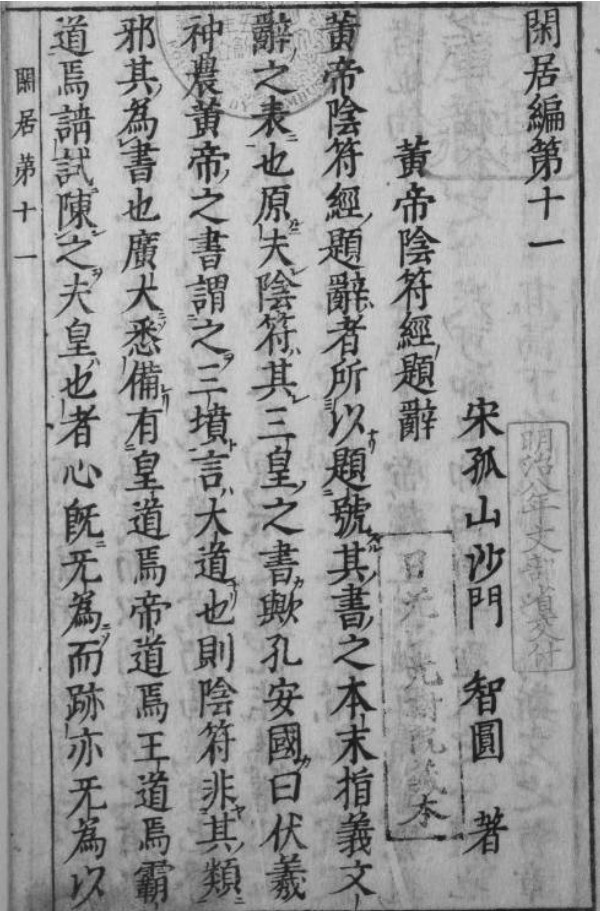 閑居編第十一
宋孤山沙門 智圓 著
黃帝陰符經題辭
黃帝陰符經題辭者所以題號其書之本末指義文
辭之表也原夫陰符其三皇之書歟孔安國曰伏羲
神農黃帝之書謂之三墳言大道也則陰符非其類
邪其為書也廣大悉備有皇道焉帝道焉王道焉霸
道焉請試陳之夫皇也者心既无為而跡亦无為以
閑居第十一
明治八年文部省交付